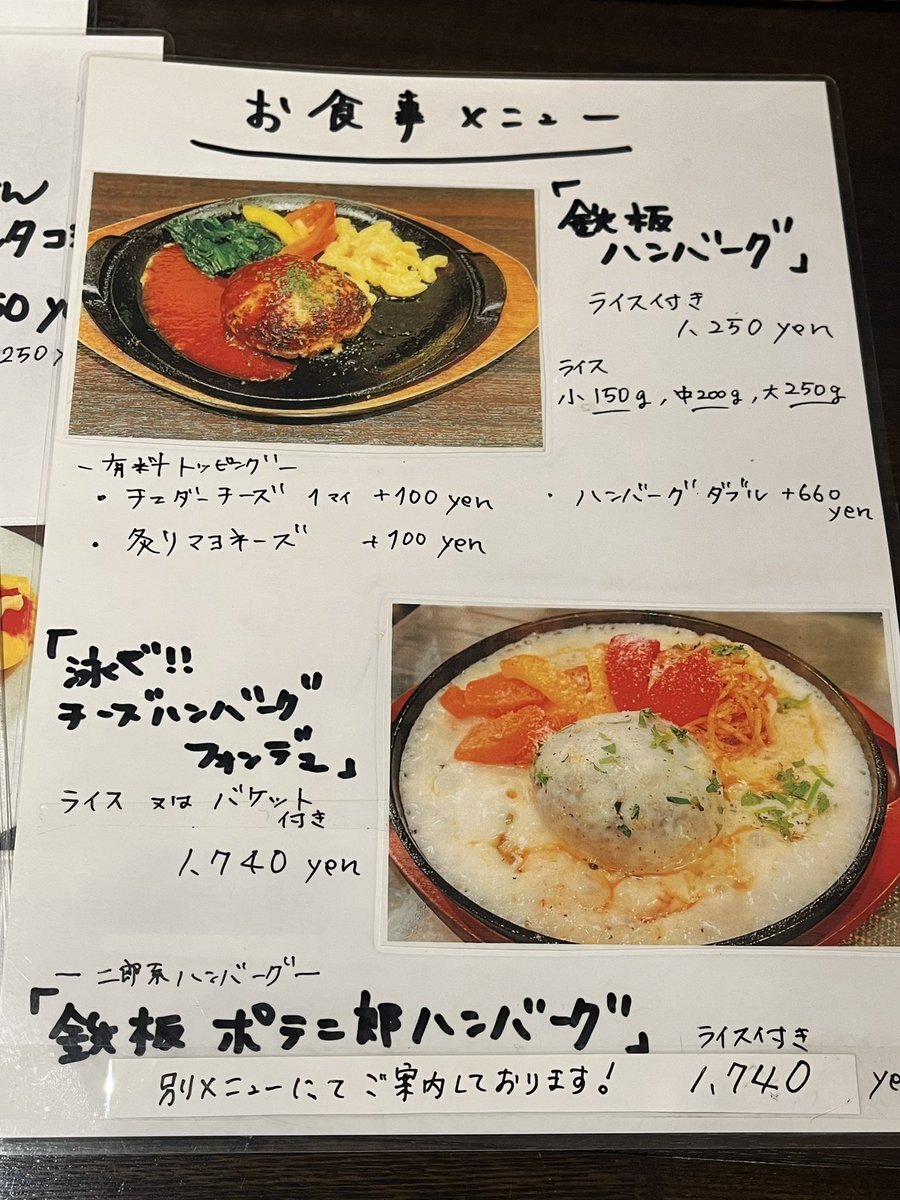 お食事メニュー
「鉄板
ハンバーグ」
ライス付き
1,250 yen
ライス
小 150g , 中200g , 大250g
ー有料トッピングー
・チェダーチーズ 1マイ +100 yen
・炙りマヨネーズ +100 yen
・ハンバーグ ダブル +660
yen
「泳ぐ!!
チーズハンバーグ
フォンデュ」
ライス 又は バケット
付き
1,740 yen
ー二郎系ハンバーグー
「鉄板 ポテ二郎ハンバーグ」
ライス付き
別メニューにてご案内しております! 1,740 ye
ん
タコ
50 y
250 y